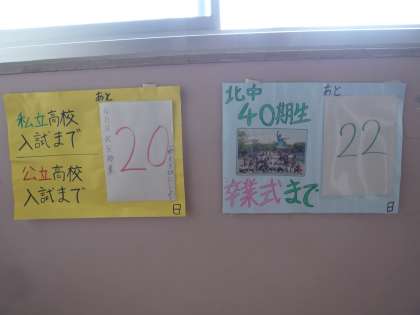 あと
私立高校
入試まで
20
公立高校
入試まで
日
北中
あと
40期生
22
卒業式まで
日